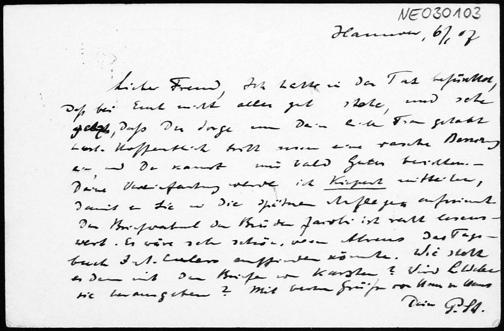 NE030103
Hannover, 6/1 07
Lieber Freund, Ich hatte in der Tat befürchtet,
daß bei Euch nicht alles gut stehe, und sehe
, daß Du Sorge um Deine liebe Frau gehabt
hast. Hoffentlich tritt nun eine rasche Besserung
ein, und Du kannst mir bald Gutes berichten. –
Deine werde ich Kiepert mitteilen,
damit er sie in die späteren Auflagen aufnimmt
Der Briefwechsel der Brüder Jacobi ist recht lesens-
wert. Es wäre sehr schön, wenn Ahrens das Tage-
buch Eulers auffinden könnte. Wie steht
es denn mit den Briefen von Karsten? Wird
sie herausgeben? Mit besten Grüßen von Haus zu Haus
Dein P. St.